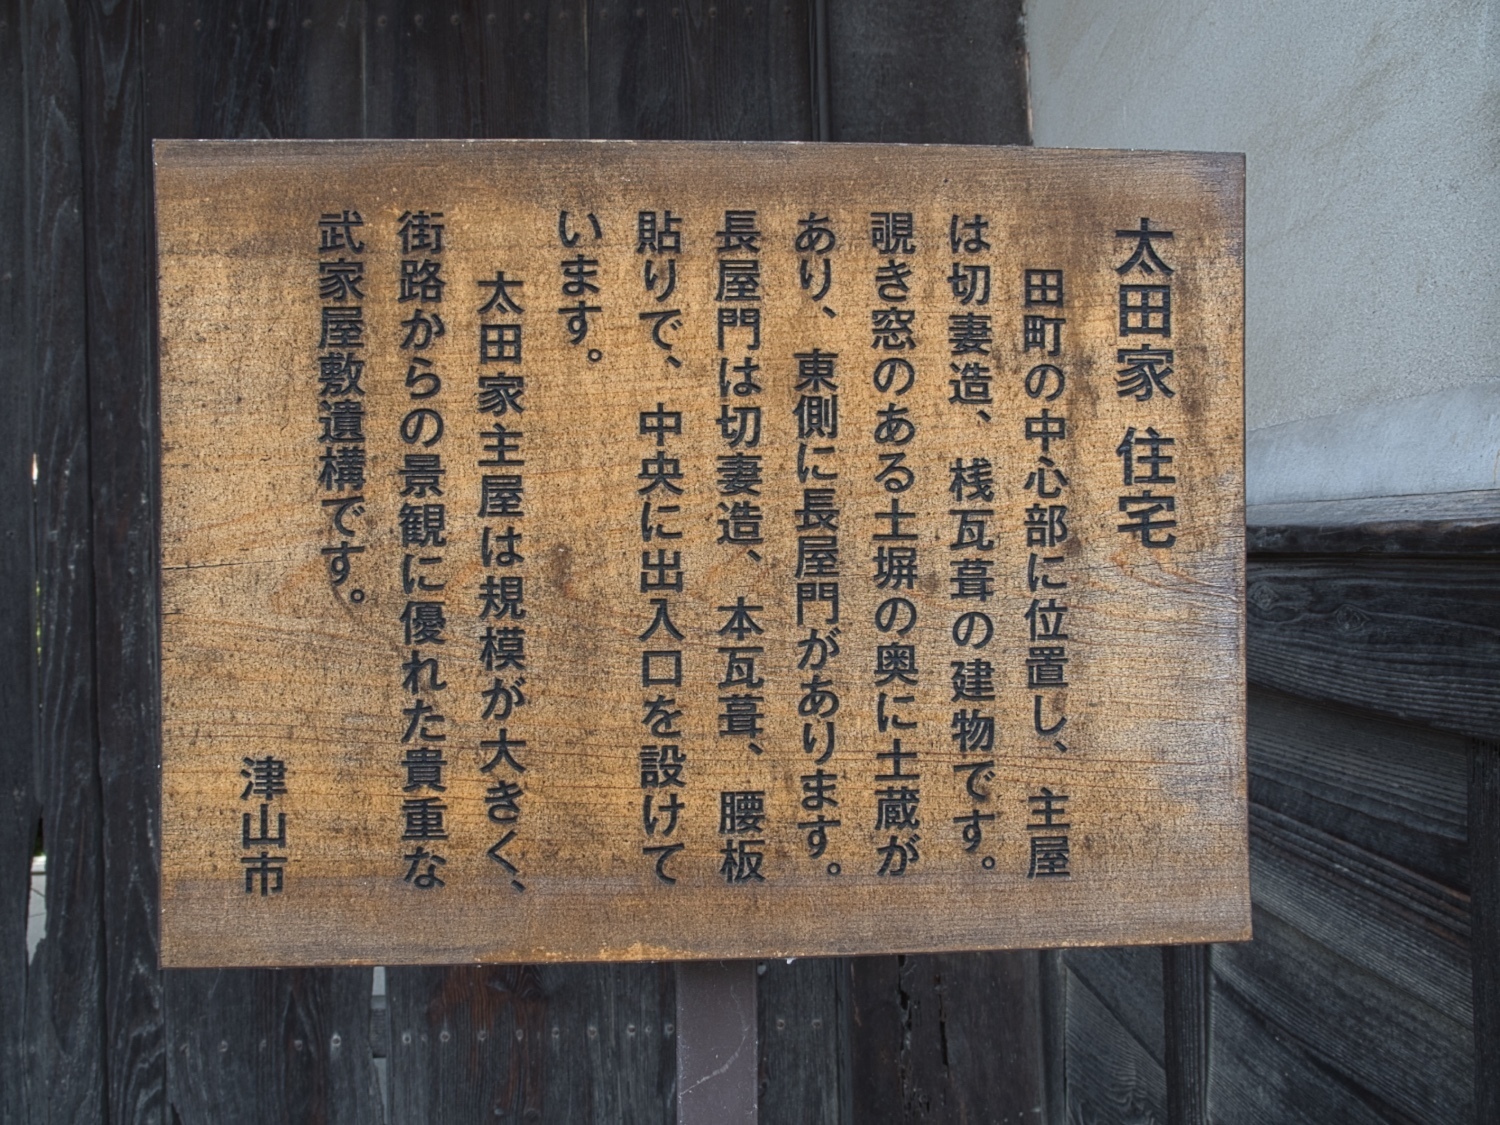 太田家 住宅
田町の中心部に位置し、主屋
は切妻造、桟瓦葺の建物です。
覗き窓のある土塀の奥に土蔵が
あり、東側に長屋門があります。
長屋門は切妻造、本瓦葺、腰板
貼りで、中央に出入口を設けて
います。
太田家主屋は規模が大きく、
街路からの景観に優れた貴重な
武家屋敷遺構です。
津山市